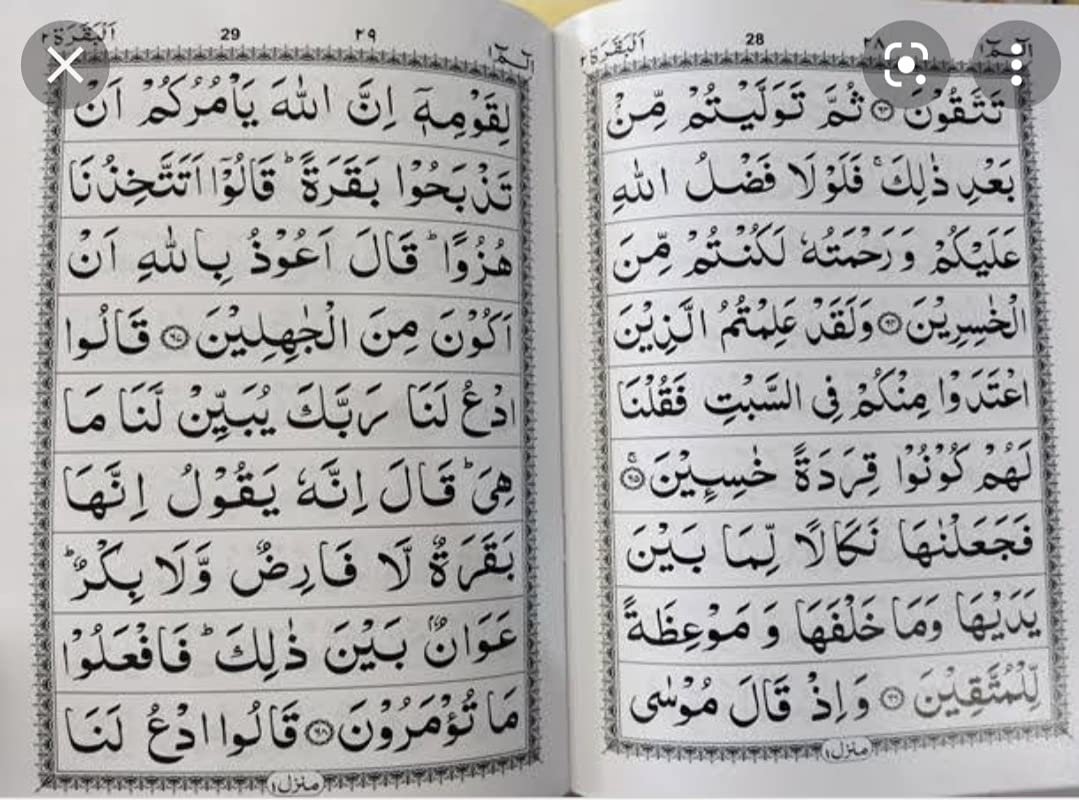 اَلْبَقَرَة ٢
28
٢٨
الٓمّٓ ١
تَتَّقُوْنَ ﴿٦٣﴾ ثُمَّ تَوَلَّيْتُمْ مِّنْۢ
بَعْدِ ذٰلِكَ ۚ فَلَوْلَا فَضْلُ اللّٰهِ
عَلَيْكُمْ وَرَحْمَتُهٗ لَكُنْتُمْ مِّنَ
الْخٰسِرِيْنَ ﴿٦٤﴾ وَلَقَدْ عَلِمْتُمُ الَّذِيْنَ
اعْتَدَوْا مِنْكُمْ فِى السَّبْتِ فَقُلْنَا
لَهُمْ كُوْنُوْا قِرَدَةً خٰسِـِٕيْنَ ﴿٦٥﴾ۚ
فَجَعَلْنٰهَا نَكَالًا لِّمَا بَيْنَ
يَدَيْهَا وَمَا خَلْفَهَا وَ مَوْعِظَةً
لِّلْمُتَّقِيْنَ ﴿٦٦﴾ وَاِذْ قَالَ مُوْسٰى
منزل ١
اَلْبَقَرَة ٢
29
٢٩
الٓمّٓ ١
لِقَوْمِهٖٓ اِنَّ اللّٰهَ يَاْمُرُكُمْ اَنْ
تَذْبَحُوْا بَقَرَةً ؕ قَالُوْٓا اَتَتَّخِذُنَا
هُزُوًا ؕ قَالَ اَعُوْذُ بِاللّٰهِ اَنْ
اَكُوْنَ مِنَ الْجٰهِلِيْنَ ﴿٦٧﴾ قَالُوا
ادْعُ لَنَا رَبَّكَ يُبَيِّنْ لَّنَا مَا
هِىَ ؕ قَالَ اِنَّهٗ يَقُوْلُ اِنَّهَا
بَقَرَةٌ لَّا فَارِضٌ وَّلَا بِكْرٌ ؕ
عَوَانٌۢ بَيْنَ ذٰلِكَ ؕ فَافْعَلُوْا
مَا تُؤْمَرُوْنَ ﴿٦٨﴾ قَالُوا ادْعُ لَنَا
منزل ١